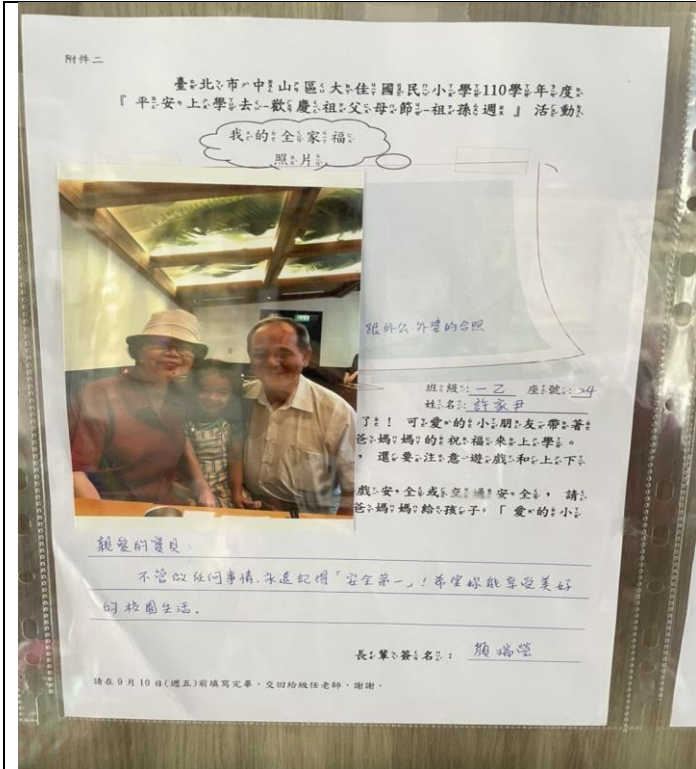 附件二
臺北市中山區大佳國民小學110學年度
『平安上學去-歡慶祖父母節-祖孫週』活動
我的全家福
照片
跟外公、外婆的合照
班級：一乙 座號：24
姓名：許家尹
了！可愛的小朋友帶著
爸媽媽的祝福來上學。
，還要注意遊戲和上下
戲安全或交通安全，請
爸媽媽給孩子。「愛的小
親愛的寶貝：
不管做任何事情，永遠記得「安全第一」！希望妳能享受美好
的校園生活。
長輩簽名：顏瑞瑩
請在9月10日(週五)前填寫完畢，交回給級任老師，謝謝。